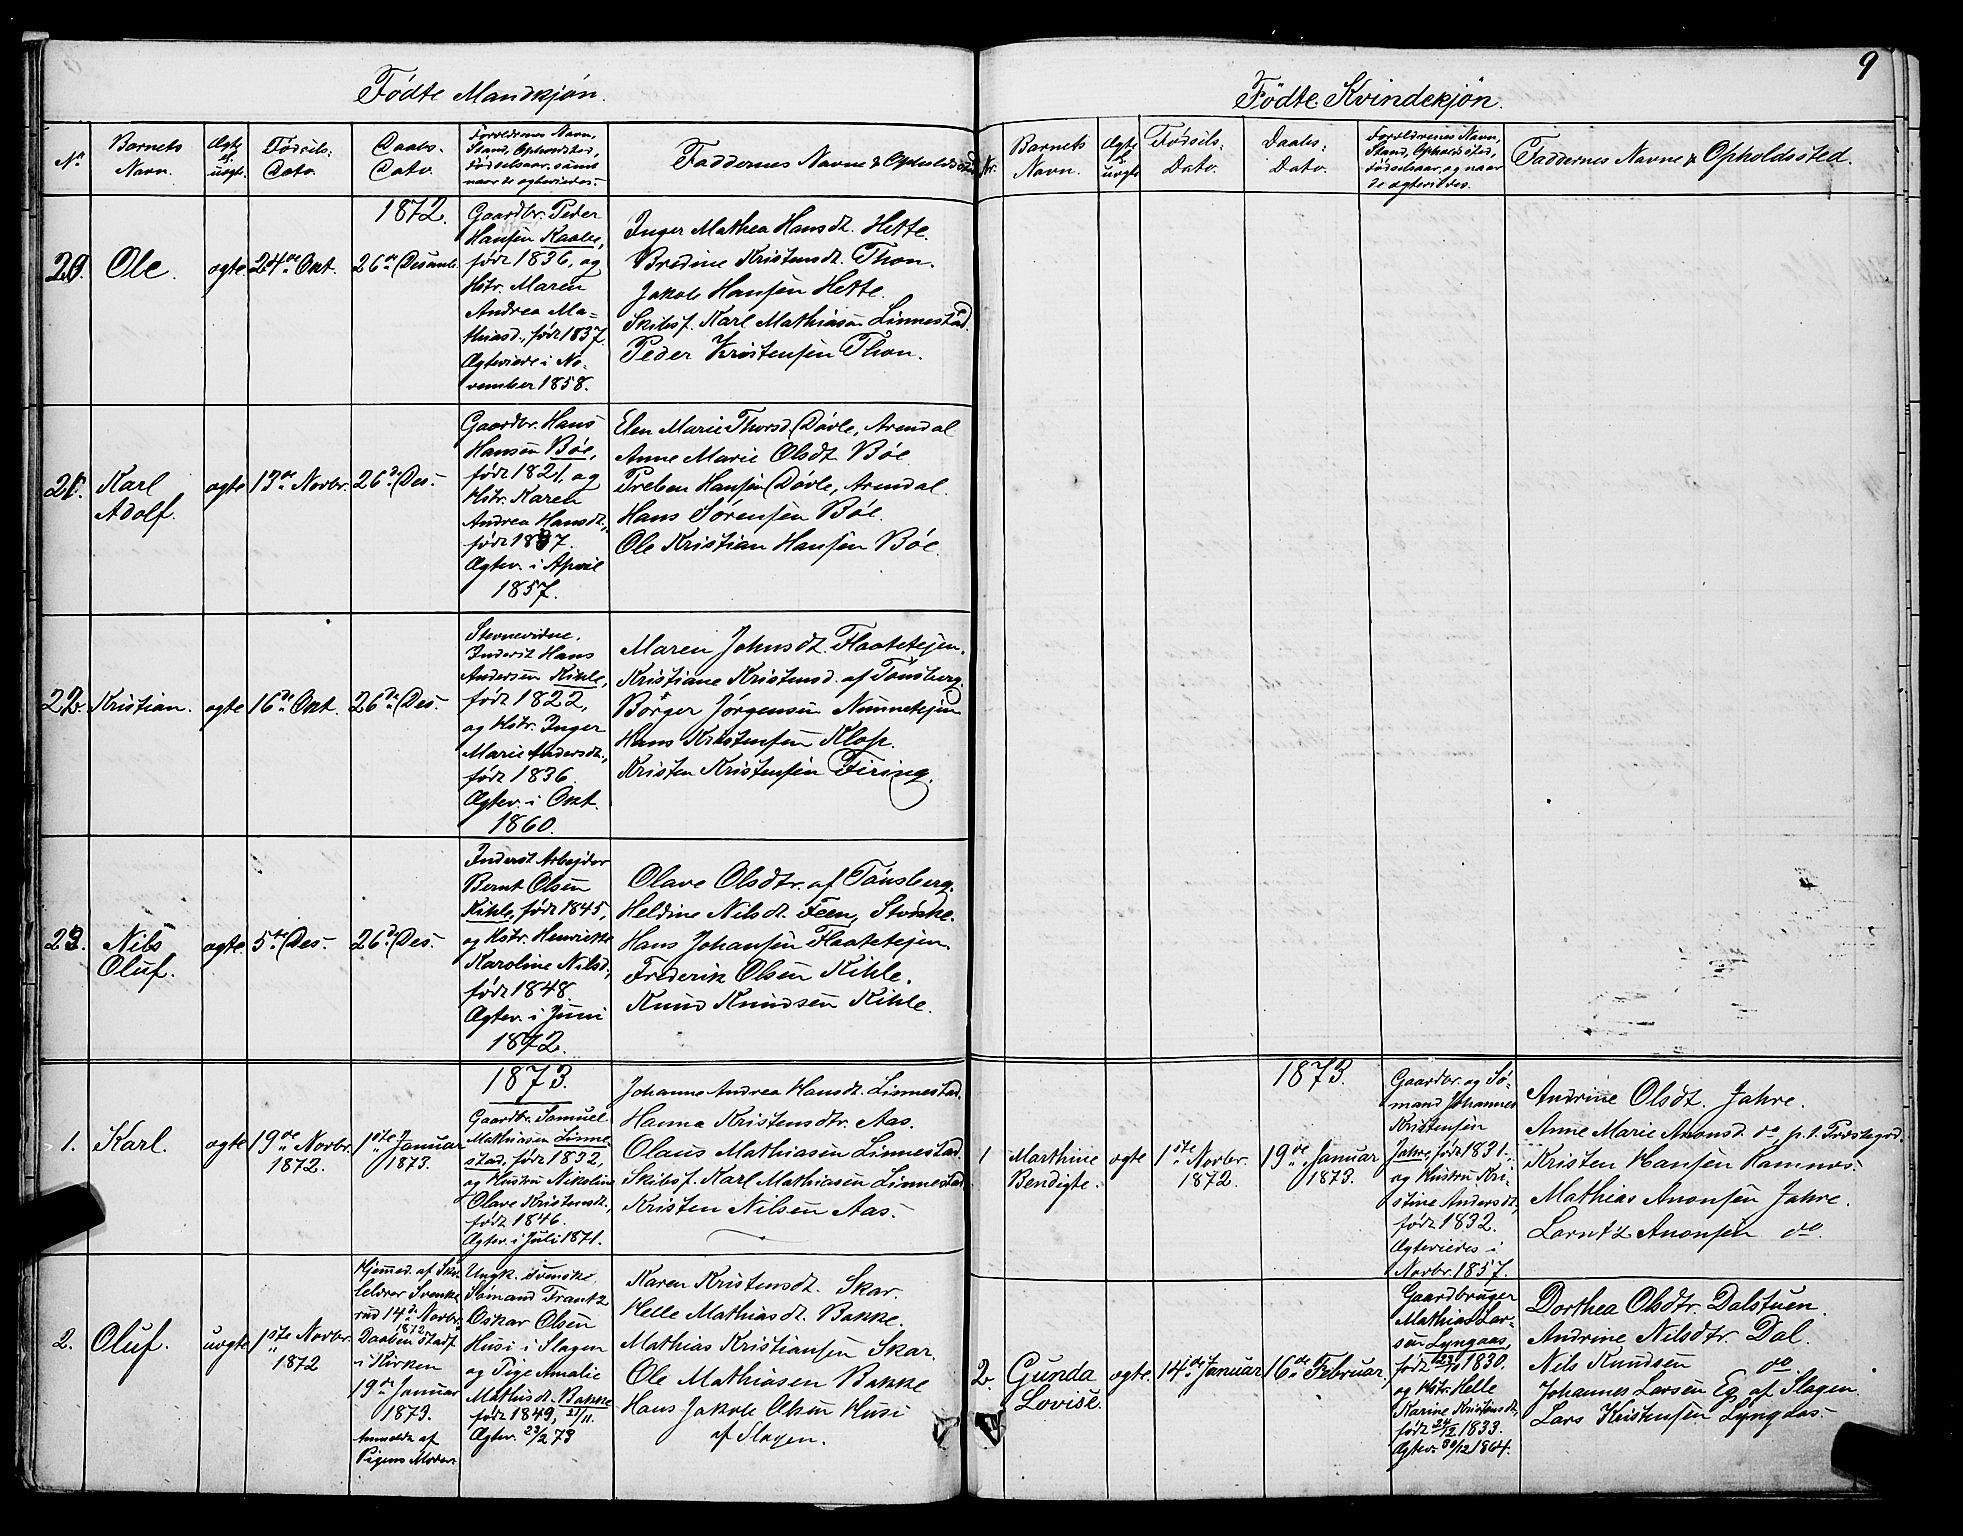 9
Fødte Mandkjøn.
No
Barnets
Navn.
Ægte
el.
uægte
Fødsels-
Dato.
Daabs-
Dato.
Forældrenes Navn,
Stand, Opholdssted,
Fødselsaar, samt
naar de ægteviedes.
Faddernes Navne & Opholdssted
20.
Ole.
ægte
24de Okt.
1872.
26de Desemb.
Gaardbr. Peder
Hansen Kaale,
født 1836, og
Hstr. Maren
Andrea Ma-
thiasd., født 1837.
Ægteviede i No-
vember 1858.
Inger Mathea Hansdt. Hette.
Bredine Kristensdt. Thon.
Jakob Hansen Hette.
Skibsf. Karl Mathiasen Linnestad.
Peder Kristensen Thon.
21.
Karl
Adolf.
ægte
13de Novbr.
26de Des.
Gaardbr. Hans
Hansen Bøe,
født 1821, og
Hstr. Karen
Andrea Hansdt.,
født 1837.
Ægtev. i April
1857.
Elen Marie Thorsd. Døvle, Arendal
Anne Marie Olsdt. Bøe.
Preben Hansen Døvle, Arendal.
Hans Sørensen Bøe.
Ole Kristian Hansen Bøe.
22.
Kristian.
ægte
16de Okt.
26de Des.
Stevnevidne,
Inderst Hans
Andersen Kihle,
født 1822,
og Hstr. Inger
Marie Andersdt.,
født 1836.
Ægtev. i Okt.
1860.
Maren Johnsdt. Flaatetejen.
Kristiane Kristensd. af Tønsberg.
Børger Jørgensen Nunnetejen
Hans Kristensen Klop.
Kristen Kristensen Firing.
23.
Nils
Oluf.
ægte
5te Des.
26de Des.
Inderst Arbejder
Bernt Olsen
Kihle, født 1845,
og Hstr. Henriette
Karoline Nilsd.,
født 1848.
Ægtev. i Juni
1872.
Olave Olsdtr. af Tønsberg.
Heldine Nilsdt. Feen, Stokke.
Hans Johansen Flaatetejen.
Frederik Olsen Kihle.
Knud Knudsen Kihle.
1.
Karl.
ægte
19de Novbr.
1872.
1ste Januar
1873.
1873.
Gaardbr. Samuel
Mathiasen Linne-
stad, født 1832,
og Hustru Nikoline
Olave Kristensdt.,
født 1846.
Ægtev. i Juli 1871.
Johanne Andrea Hansdt. Linnestad.
Hanna Kristensdtr. Aas.
Olaus Mathiasen Linnestad.
Skibsf. Karl Mathiasen Linnestad
Kristen Nilsen Aas.
2.
Oluf.
uægte
1ste Novbr.
1872
Hjemmed. af Skol-
lelærer Svenke-
rud 14de Novbr.
1872
Daaben stadf.
i Kirken
19de Januar
1873.
Anmeldt af
Pigens Moder.
Ungk. svenske
Sømand Frantz
Oskar Olsen
Husi i Slagen
og Pige Amalie
Mathisdt. Bakke
født 1849, 21/11.
Ægtev. 23/2 73
Karen Kristensdt. Skar.
Helle Mathiasdt. Bakke.
Mathias Kristiansen Skar.
Ole Mathiasen Bakke
Hans Jakob Olsen Husi
af Slagen.
Fødte Kvindekjøn.
Nr.
Barnets
Navn.
Ægte
el.
uægte
Fødsels-
Dato.
Daabs-
Dato.
Forældrenes Navn,
Stand, Opholdssted,
Fødselsaar, og naar
de ægteviedes.
Faddernes Navne & Opholdssted.
1
Marthine
Bendigte.
ægte
1ste Novbr.
1872.
1873.
19de Januar
1873.
Gaardbr. og Sø-
mand Johannes
Kristensen
Jahre, født 1831.,
og Hustru Kri-
stine Andersdt.,
født 1832.
Ægteviedes i
Novbr. 1857.
Andrine Olsdt. Jahre.
Anne Marie Anonsd. do, p.t. Præstegrd.
Kristen Hansen Ramnes.
Mathias Anonsen Jahre.
Larntz Anonsen do.
2.
Gunda
Lovise.
ægte.
14de Januar
16de Februar
Gaardbruger
Mathias Lar-
sen Lyngaas,
født 23/10 1830.
og Hstr. Helle
Karine Kristensdt.,
født 24/12 1833.
Ægtev. 30/12 1864.
Dorthea Olsdtr. Dalstuen.
Andrine Nilsdtr. Dal.
Nils Knudsen do
Johannes Larsen Eg af Slagen.
Lars Kristensen Lyngaas.